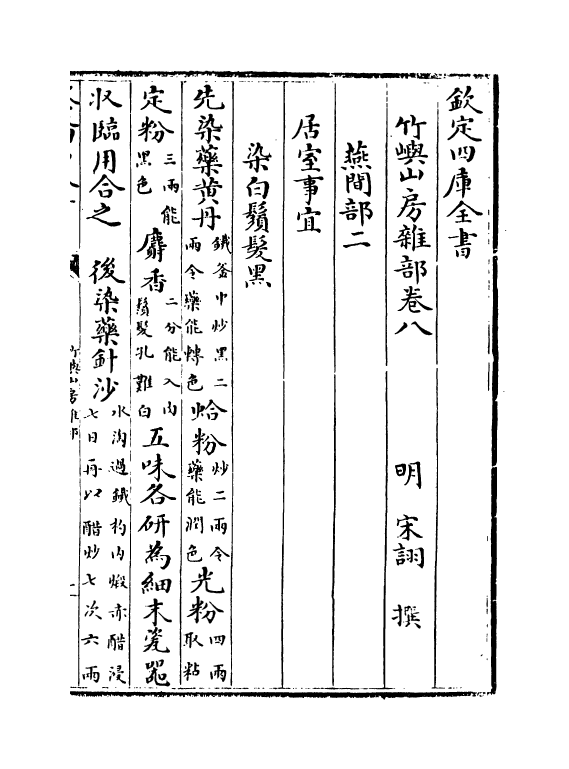 欽定四庫全書
竹嶼山房雜部卷八
明 宋詡 撰
燕閒部二
居室事宜
染白鬚髮黑
先染藥黄丹鐵釜中炒黑二兩令藥能轉色蛤粉炒二兩令藥能潤色光粉四兩取粘
定粉三兩能黑色麝香二分能入内鬚髮孔難白五味各研為細末瓷器
收臨用合之 後染藥針沙水淘過鐵杓内煅赤醋浸七日再以醋炒七次六兩
竹嶼山房雜部